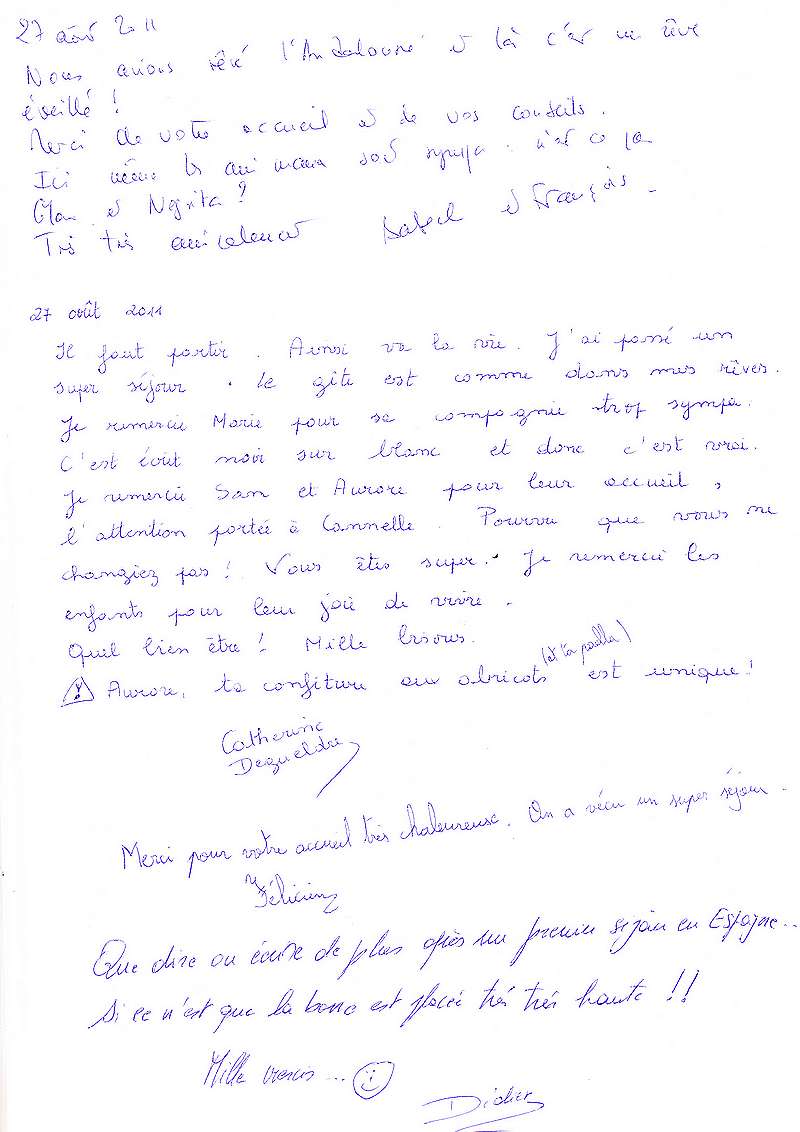 27 août 2011
Nous avions rêvé l'Andalousie et là c'est un rêve
éveillé !
Merci de votre accueil et de vos conseils.
Ici même les animaux sont sympas. n'est ce pas
et Negrita ?
Très très amicalement Isabel et François.
27 août 2011
Il faut partir. Ainsi va la vie. J'ai passé un
super séjour. Le gîte est comme dans mes rêves.
Je remercie Marie pour sa compagnie trop sympa.
C'est écrit noir sur blanc et donc c'est vrai.
Je remercie Sam et Aurore pour leur accueil,
l'attention portée à Cannelle. Pourvu que vous ne
changiez pas ! Vous êtes super. Je remercie les
enfants pour leur joie de vivre.
Quel bien être ! Mille bisous.
(et ta paella)
! Aurore, ta confiture aux abricots est unique !
Catherine
Degueldre
Merci pour votre accueil très chaleureuse. On a vécu un super séjour.
Félicien
Que dire ou écrire de plus après un premier séjour en Espagne...
Si ce n'est que la barre est placée très très haute !!
Mille mercis...
Didier